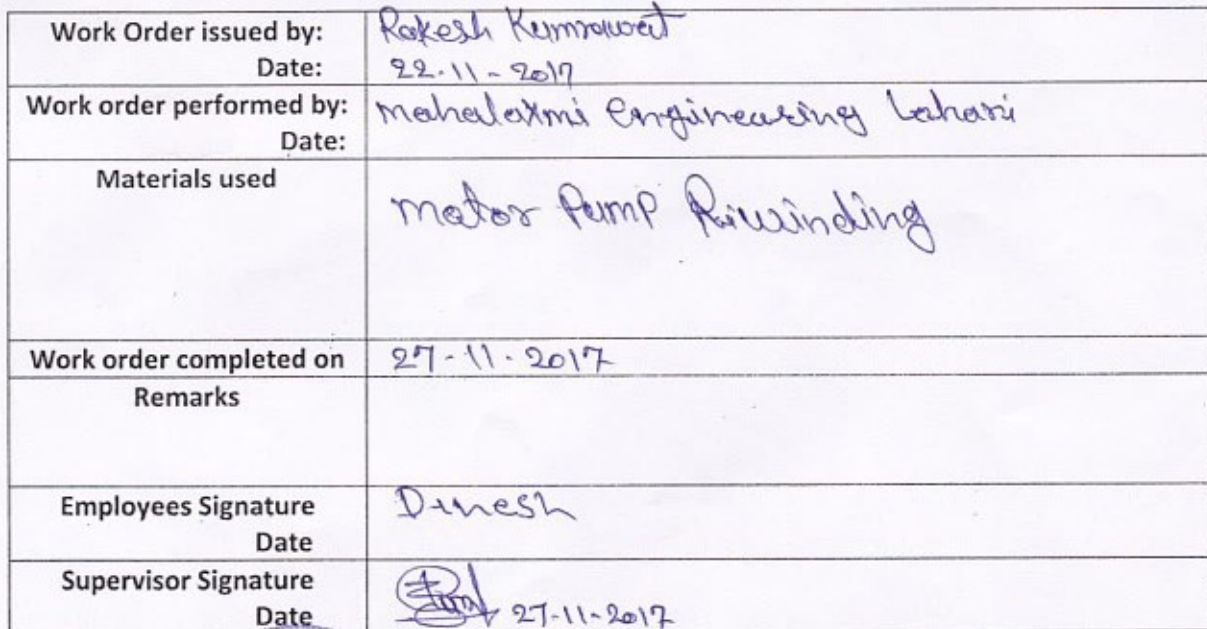 Work Order issued by: Rakesh Kumrawat
Date: 22-11-2017
Work order performed by: Mahalaxmi Engineering Lahari
Date:
Materials used
Motor Pump Riwinding
Work order completed on 27-11-2017
Remarks
Employees Signature Dinesh
Date
Supervisor Signature
Date 27-11-2017